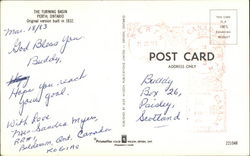 THE TURNING BASIN
PERTH, ONTARIO
Original version built in 1832
Mar. 18/83
God Bless You
Buddy,
Hope you reach
your goal.
With Love
Mrs Sandra Myers
RR#1
Balderson, Ont. Canada
K0G1A0
POST CARD
ADDRESS ONLY
Buddy
Box 26,
Paisley,
Scotland.
221048